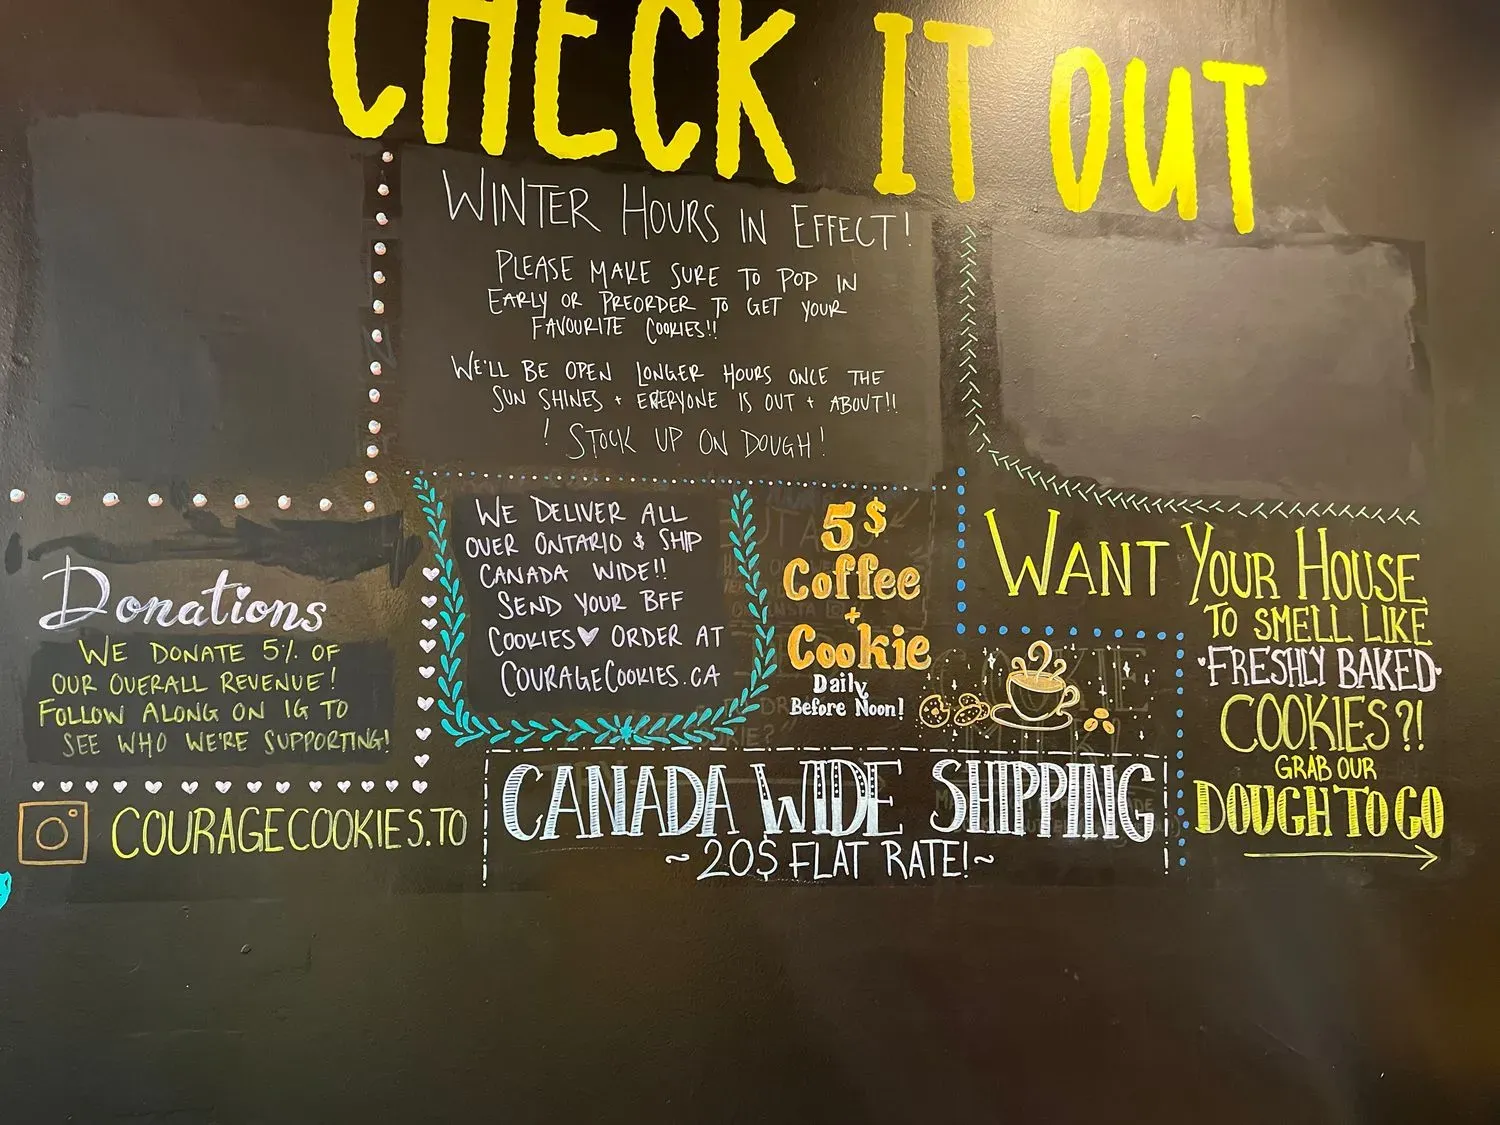 CHECK IT OUT
WINTER HOURS IN EFFECT!
PLEASE MAKE SURE TO POP IN
EARLY OR PREORDER TO GET YOUR
FAVOURITE COOKIES!!
WE'LL BE OPEN LONGER HOURS ONCE THE
SUN SHINES + EVERYONE IS OUT + ABOUT!!
! STOCK UP ON DOUGH!
Donations
WE DONATE 5% OF
OUR OVERALL REVENUE!
FOLLOW ALONG ON IG TO
SEE WHO WE'RE SUPPORTING!
COURAGECOOKIES.TO
WE DELIVER ALL
OVER ONTARIO & SHIP
CANADA WIDE!!
SEND YOUR BFF
COOKIES♥ ORDER AT
COURAGECOOKIES.CA
5$
Coffee
+
Cookie
Daily
Before Noon!
CANADA WIDE SHIPPING
~20$ FLAT RATE!~
WANT YOUR HOUSE
TO SMELL LIKE
·FRESHLY BAKED·
COOKIES?!
GRAB OUR
DOUGH TO GO